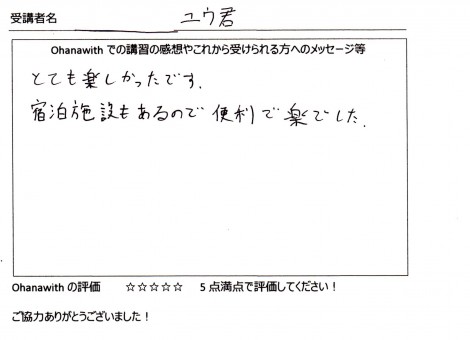 受講者名 ユウ君
Ohanawith での講習の感想やこれから受けられる方へのメッセージ等
とても楽しかったです.
宿泊施設もあるので便利で楽でした.
Ohanawith の評価 ☆☆☆☆☆ 5 点満点で評価してください！
ご協力ありがとうございました！